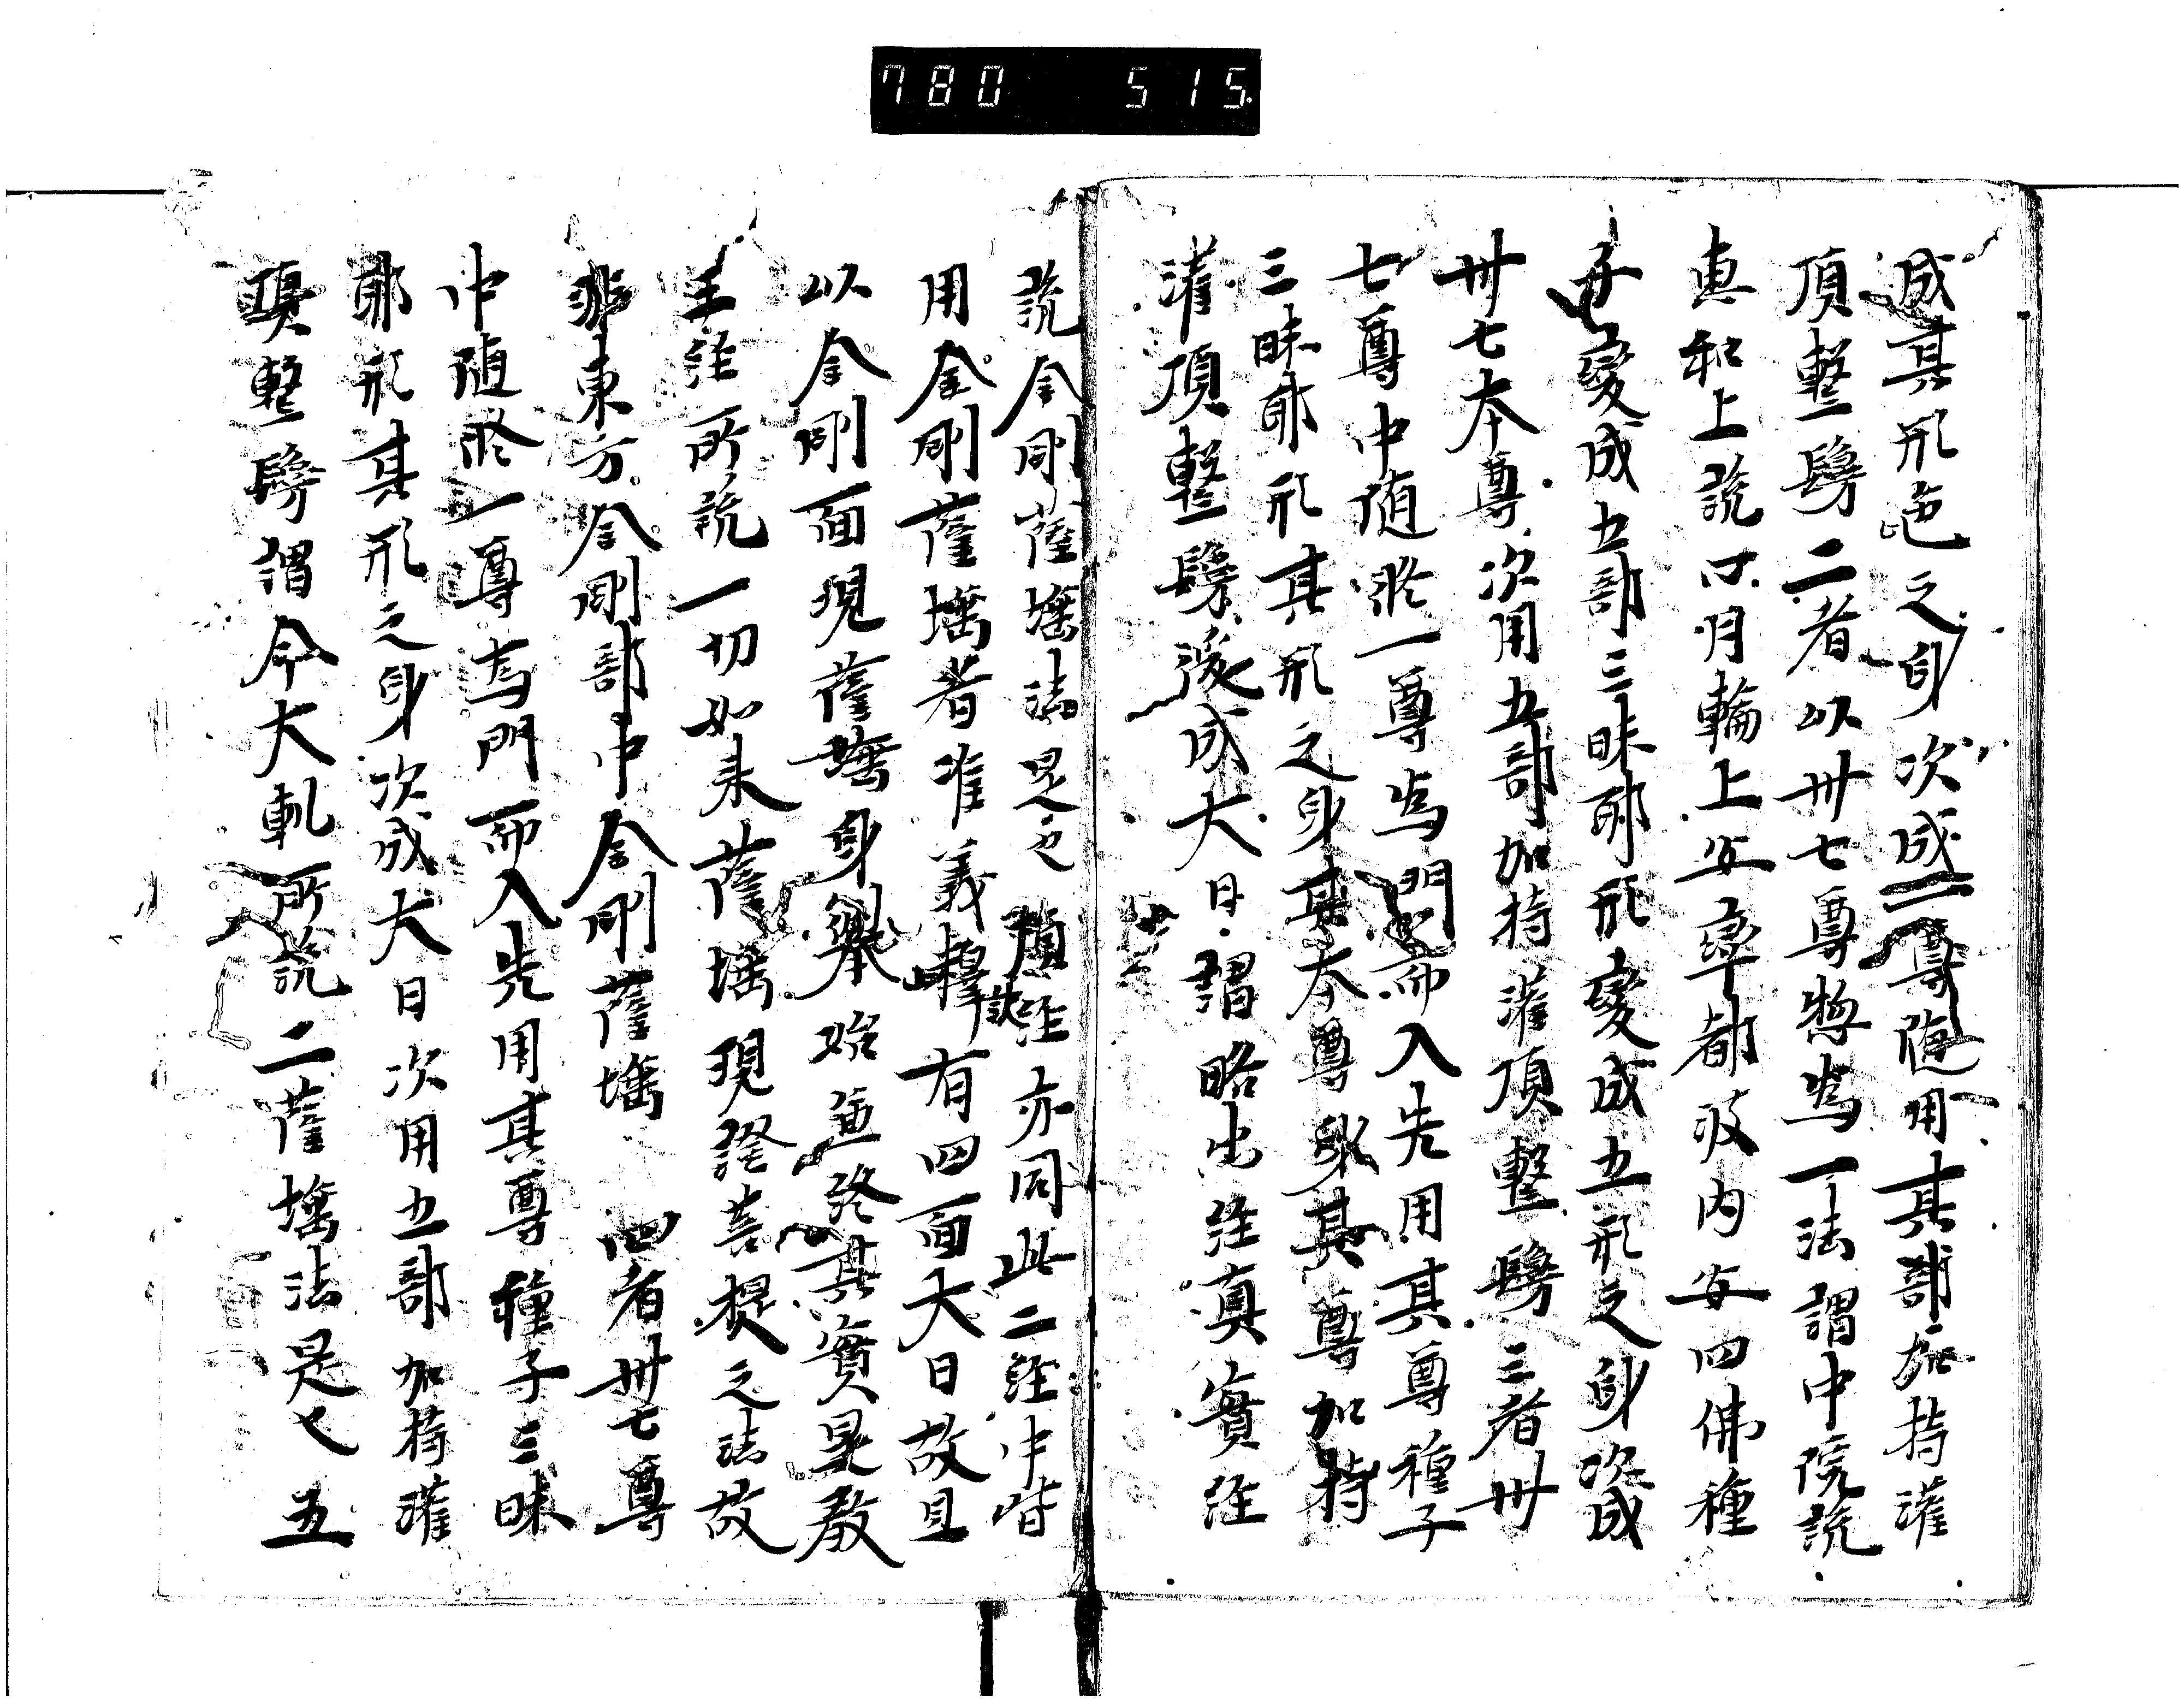 780 515.
成其形色之身次成一尊随用其部加持灌
頂整鬘二者以卅七尊惣為一法謂中院説
惠和上説心月輪上安窣都波内安四佛種
子変成五部三昧耶形変成五形之身次成
卅七本尊次用五部加持灌頂整鬘三者卅
七尊中随於一尊為門而入先用其尊種子
三昧耶形其形之身其本尊身其尊加持
灌頂整鬘後成大日謂略出経真實経
説金剛薩埵法是也 経亦同此二経中皆
用金剛薩埵者准義釋有四面大日故且
以金剛面現薩埵身舉始兼終其實是教
王経所説一切如来薩埵現證菩提之法故
非東方金剛部中金剛薩埵 四者卅七尊
中随於一尊為門而入先用其尊種子三昧
耶形其形之身次成大日次用五部加持灌
頂整鬘謂今大軌所説二薩埵法是也 五